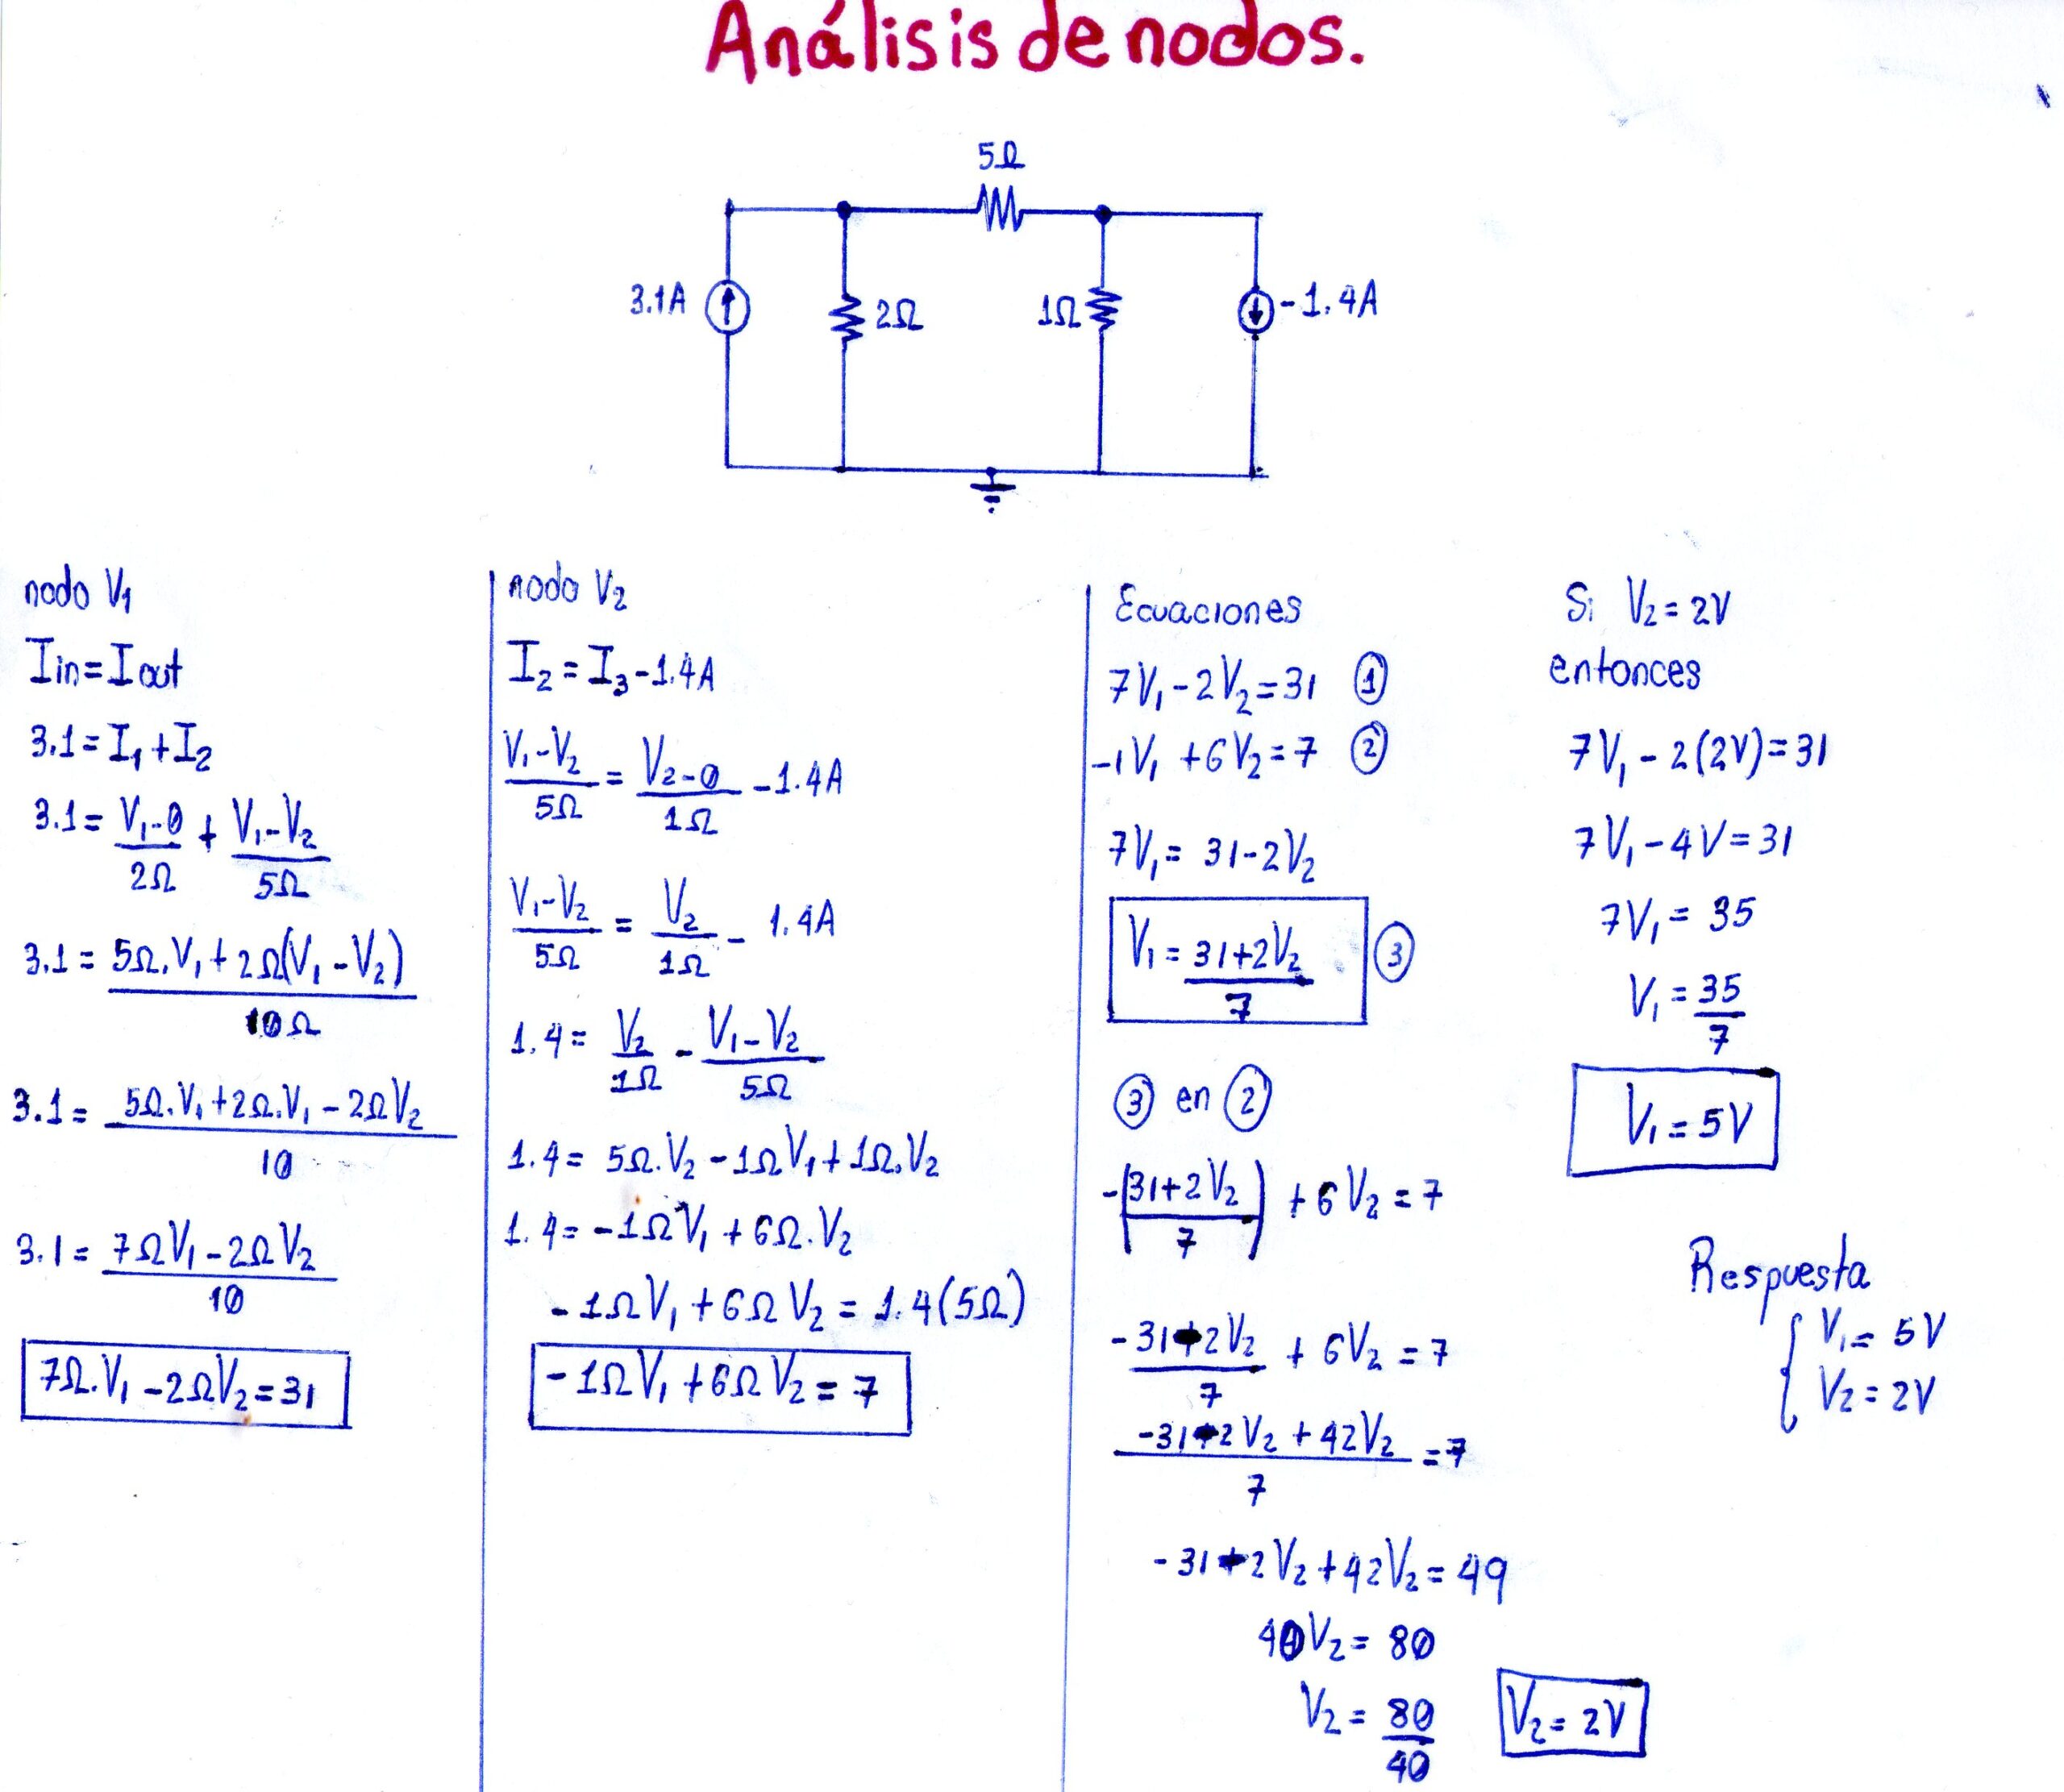 Análisis de nodos.
5Ω
3.1A
2Ω
1Ω
-1.4A
nodo V1
Iin=Iout
3.1=I1+I2
3.1= V1-0/2Ω + V1-V2/5Ω
3.1= 5Ω.V1+2Ω(V1-V2)/10Ω
3.1= 5Ω.V1+2Ω.V1-2ΩV2/10
3.1= 7ΩV1-2ΩV2/10
7Ω.V1-2ΩV2=31
nodo V2
I2=I3-1.4A
V1-V2/5Ω = V2-0/1Ω -1.4A
V1-V2/5Ω = V2/1Ω - 1.4A
1.4= V2/1Ω - V1-V2/5Ω
1.4= 5Ω.V2-1ΩV1+1Ω.V2
1.4= -1ΩV1+6Ω.V2
-1ΩV1+6ΩV2=1.4(5Ω)
-1ΩV1+6ΩV2=7
Ecuaciones
7V1-2V2=31 ①
-1V1+6V2=7 ②
7V1= 31-2V2
V1= 31+2V2/7 ③
③ en ②
-(31+2V2/7) +6V2=7
-31-2V2/7 + 6V2=7
-31-2V2+42V2/7 =7
-31-2V2+42V2=49
40V2=80
V2= 80/40
V2=2V
Si V2=2V
entonces
7V1-2(2V)=31
7V1-4V=31
7V1=35
V1=35/7
V1=5V
Respuesta
{ V1= 5V
V2= 2V